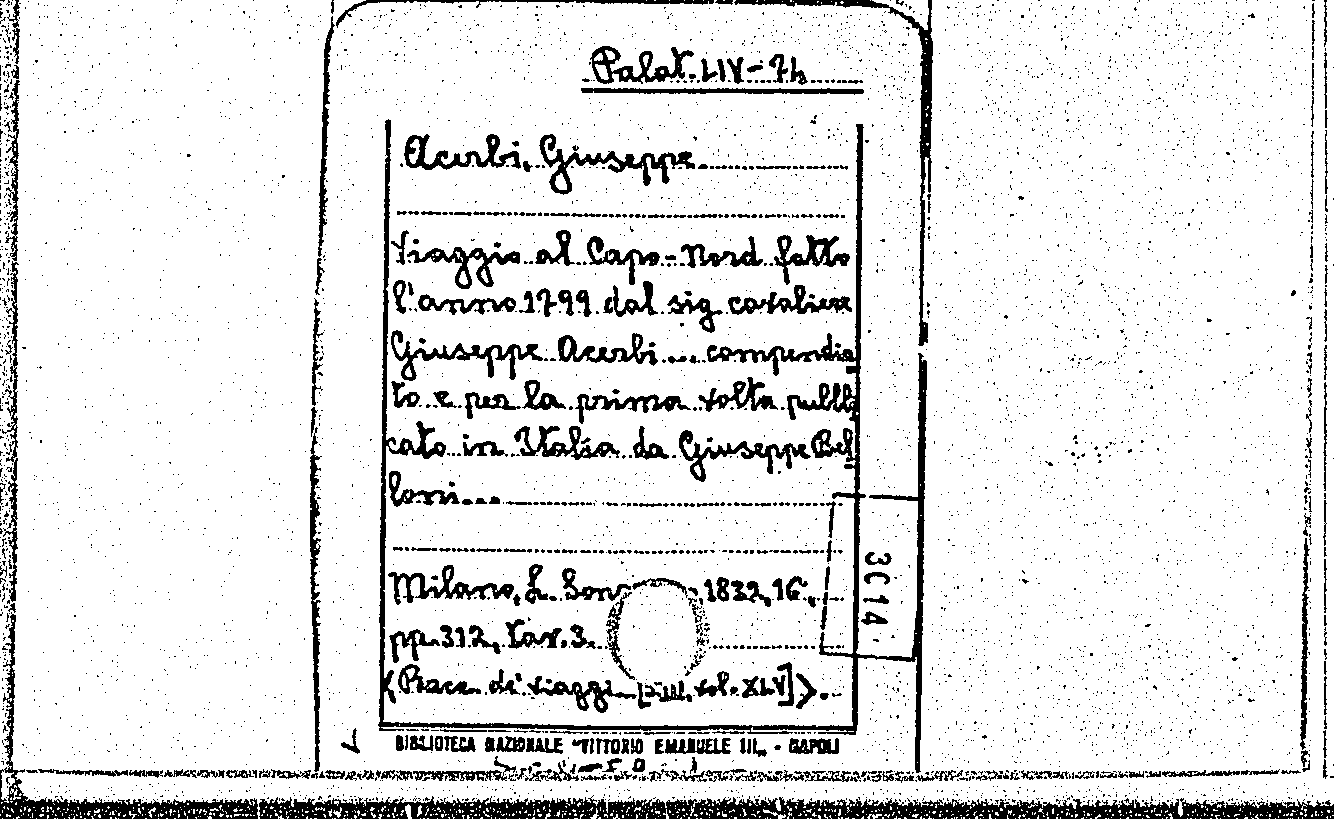 Palat. LIV-74
Acerbi, Giuseppe.
Viaggio al Capo-Nord fatto
l'anno 1799 dal sig cavaliere
Giuseppe Acerbi... compendia
to e per la prima volta pubbli
cato in Italia da Giuseppe Bel
loni...
Milano, L. 1832, 16,
pp. 312, tav. 3.
(Racc. de' viaggi vol. XLV]).
3C14
BIBLIOTECA NAZIONALE "VITTORIO EMANUELE III„ - NAPOLI